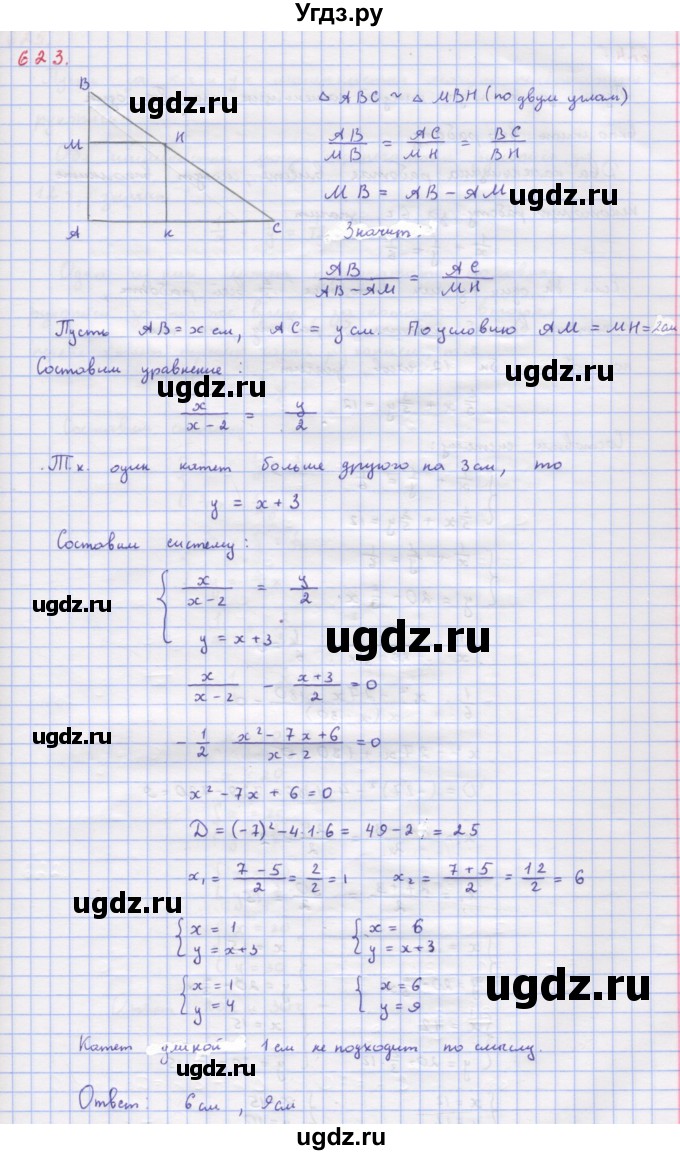 Угдз.ру
623.
B
M
H
A
K
C
ugdz.ru
△ ABC ~ △ MBH (по двум углам)
AB/MB = AC/MH = BC/BH
MB = AB - AM
ugdz.ru
Значит:
AB/(AB - AM) = AC/MH
Пусть AB = x см, AC = y см. По условию AM = MH = 2см
Составим уравнение:
ugdz.ru
ugdz.ru
x/(x - 2) = y/2
Т.к. один катет больше другого на 3 см, то
y = x + 3
Составим систему:
ugdz.ru
{ x/(x - 2) = y/2
y = x + 3
ugdz.ru
x/(x - 2) - (x + 3)/2 = 0
ugdz.ru
- 1/2 (x² - 7x + 6)/(x - 2) = 0
x² - 7x + 6 = 0
D = (-7)² - 4·1·6 = 49 - 2 = 25
x₁ = (7 - 5)/2 = 2/2 = 1 x₂ = (7 + 5)/2 = 12/2 = 6
ugdz.ru
{ x = 1 { x = 6
y = x + 3 y = x + 3
{ x = 1 { x = 6
y = 4 y = 9
ugdz.ru
Катет длиной 1 см не подходит по смыслу.
ugdz.ru
Ответ: 6 см, 9 см
ugdz.ru